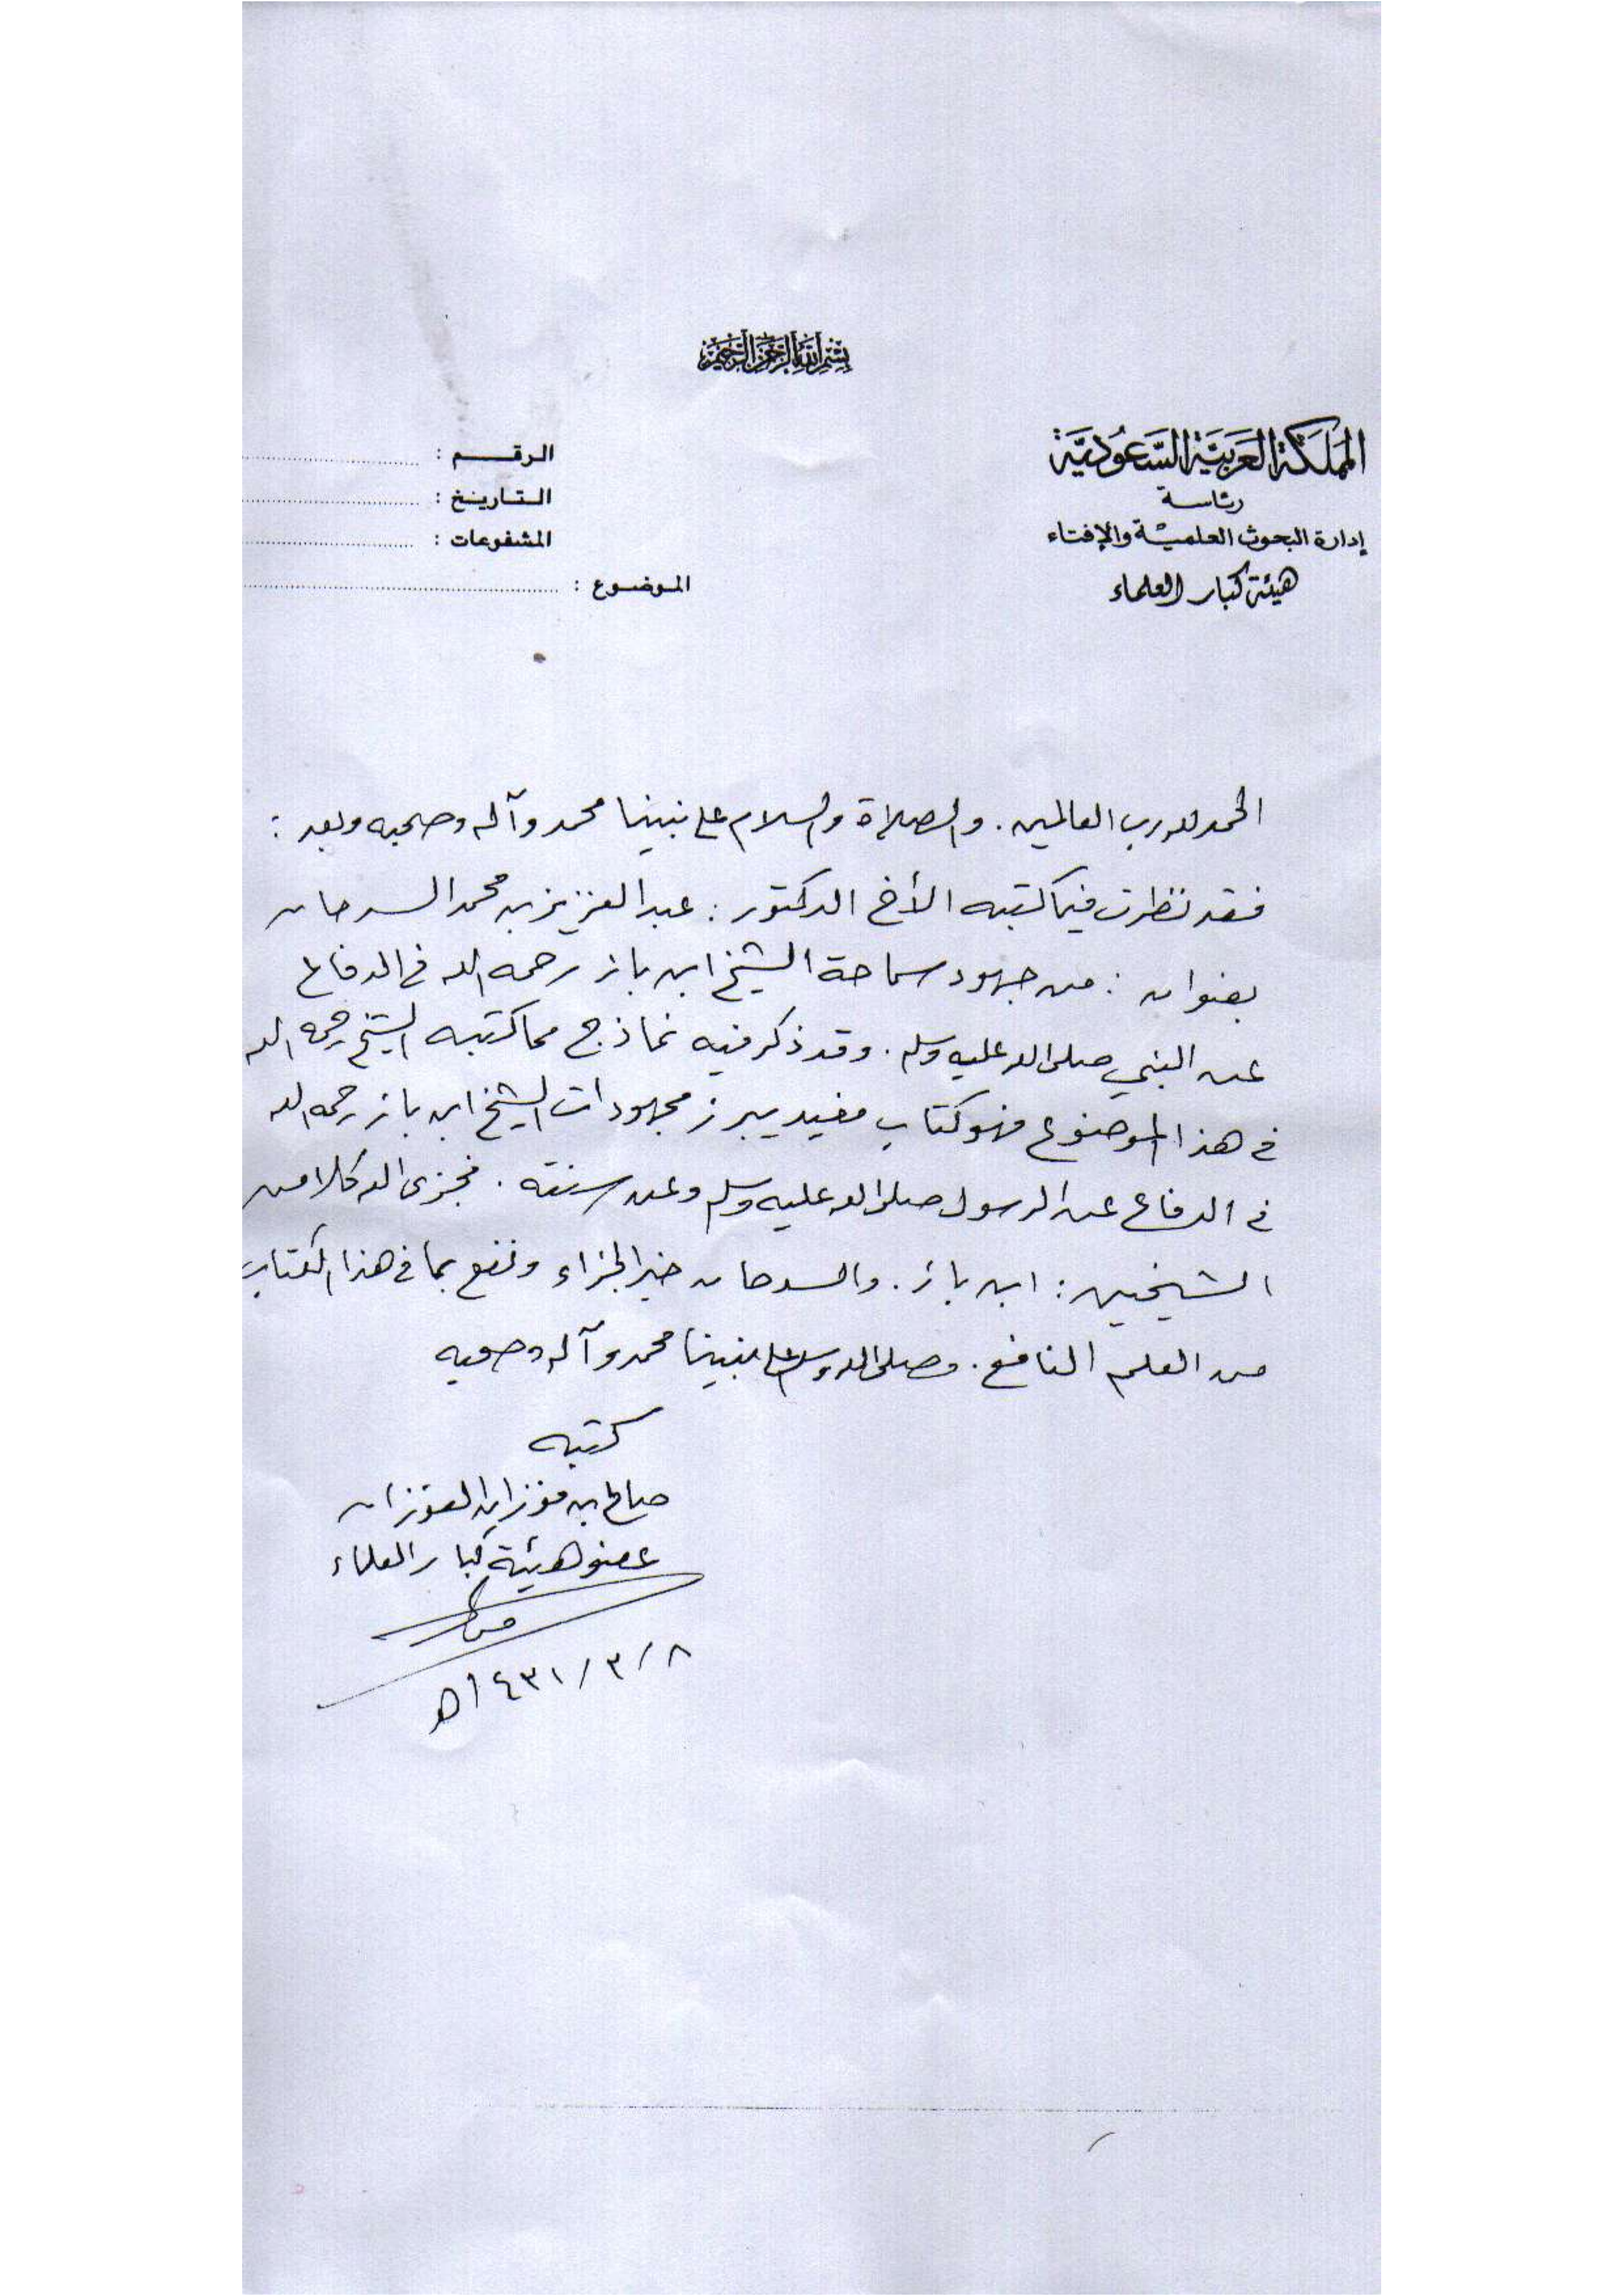 بسم الله الرحمن الرحيم
المملكة العربية السعودية
رئاسة
إدارة البحوث العلمية والإفتاء
هيئة كبار العلماء
الرقم :
التاريخ :
المشفوعات :
الموضوع :
الحمد لله رب العالمين . والصلاة والسلام على نبينا محمد وآله وصحبه وبعد :
فقد نظرت فيما كتبه الأخ الدكتور : عبد العزيز بن محمد السدحان
بعنوان : من جهود سماحة الشيخ ابن باز رحمه الله في الدفاع
عن النبي صلى الله عليه وسلم . وقد ذكر فيه نماذج مما كتبه الشيخ رحمه الله
في هذا الموضوع فهو كتاب مفيد يبرز مجهودات الشيخ ابن باز رحمه الله
في الدفاع عن الرسول صلى الله عليه وسلم وعن سنته . فجزى الله كلا من
الشيخين : ابن باز . والسدحان خير الجزاء ونفع بما في هذا الكتاب
من العلم النافع . وصلى الله وسلم على نبينا محمد وآله وصحبه
كتبه
صالح بن فوزان الفوزان
عضو هيئة كبار العلماء
٨ / ٣ / ١٤٣١هـ